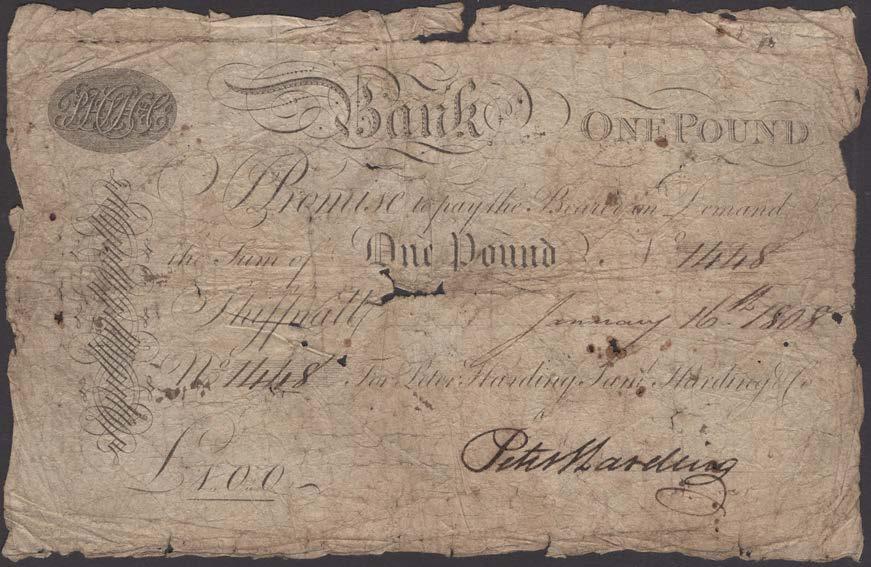 Bank ONE POUND
I Promise to pay the Bearer on Demand
the Sum of One Pound No 1448
Shiffnall January 16th 1808
No 1448 For Peter Harding Saml Harding & Co
£ 1..0..0
Peter Harding